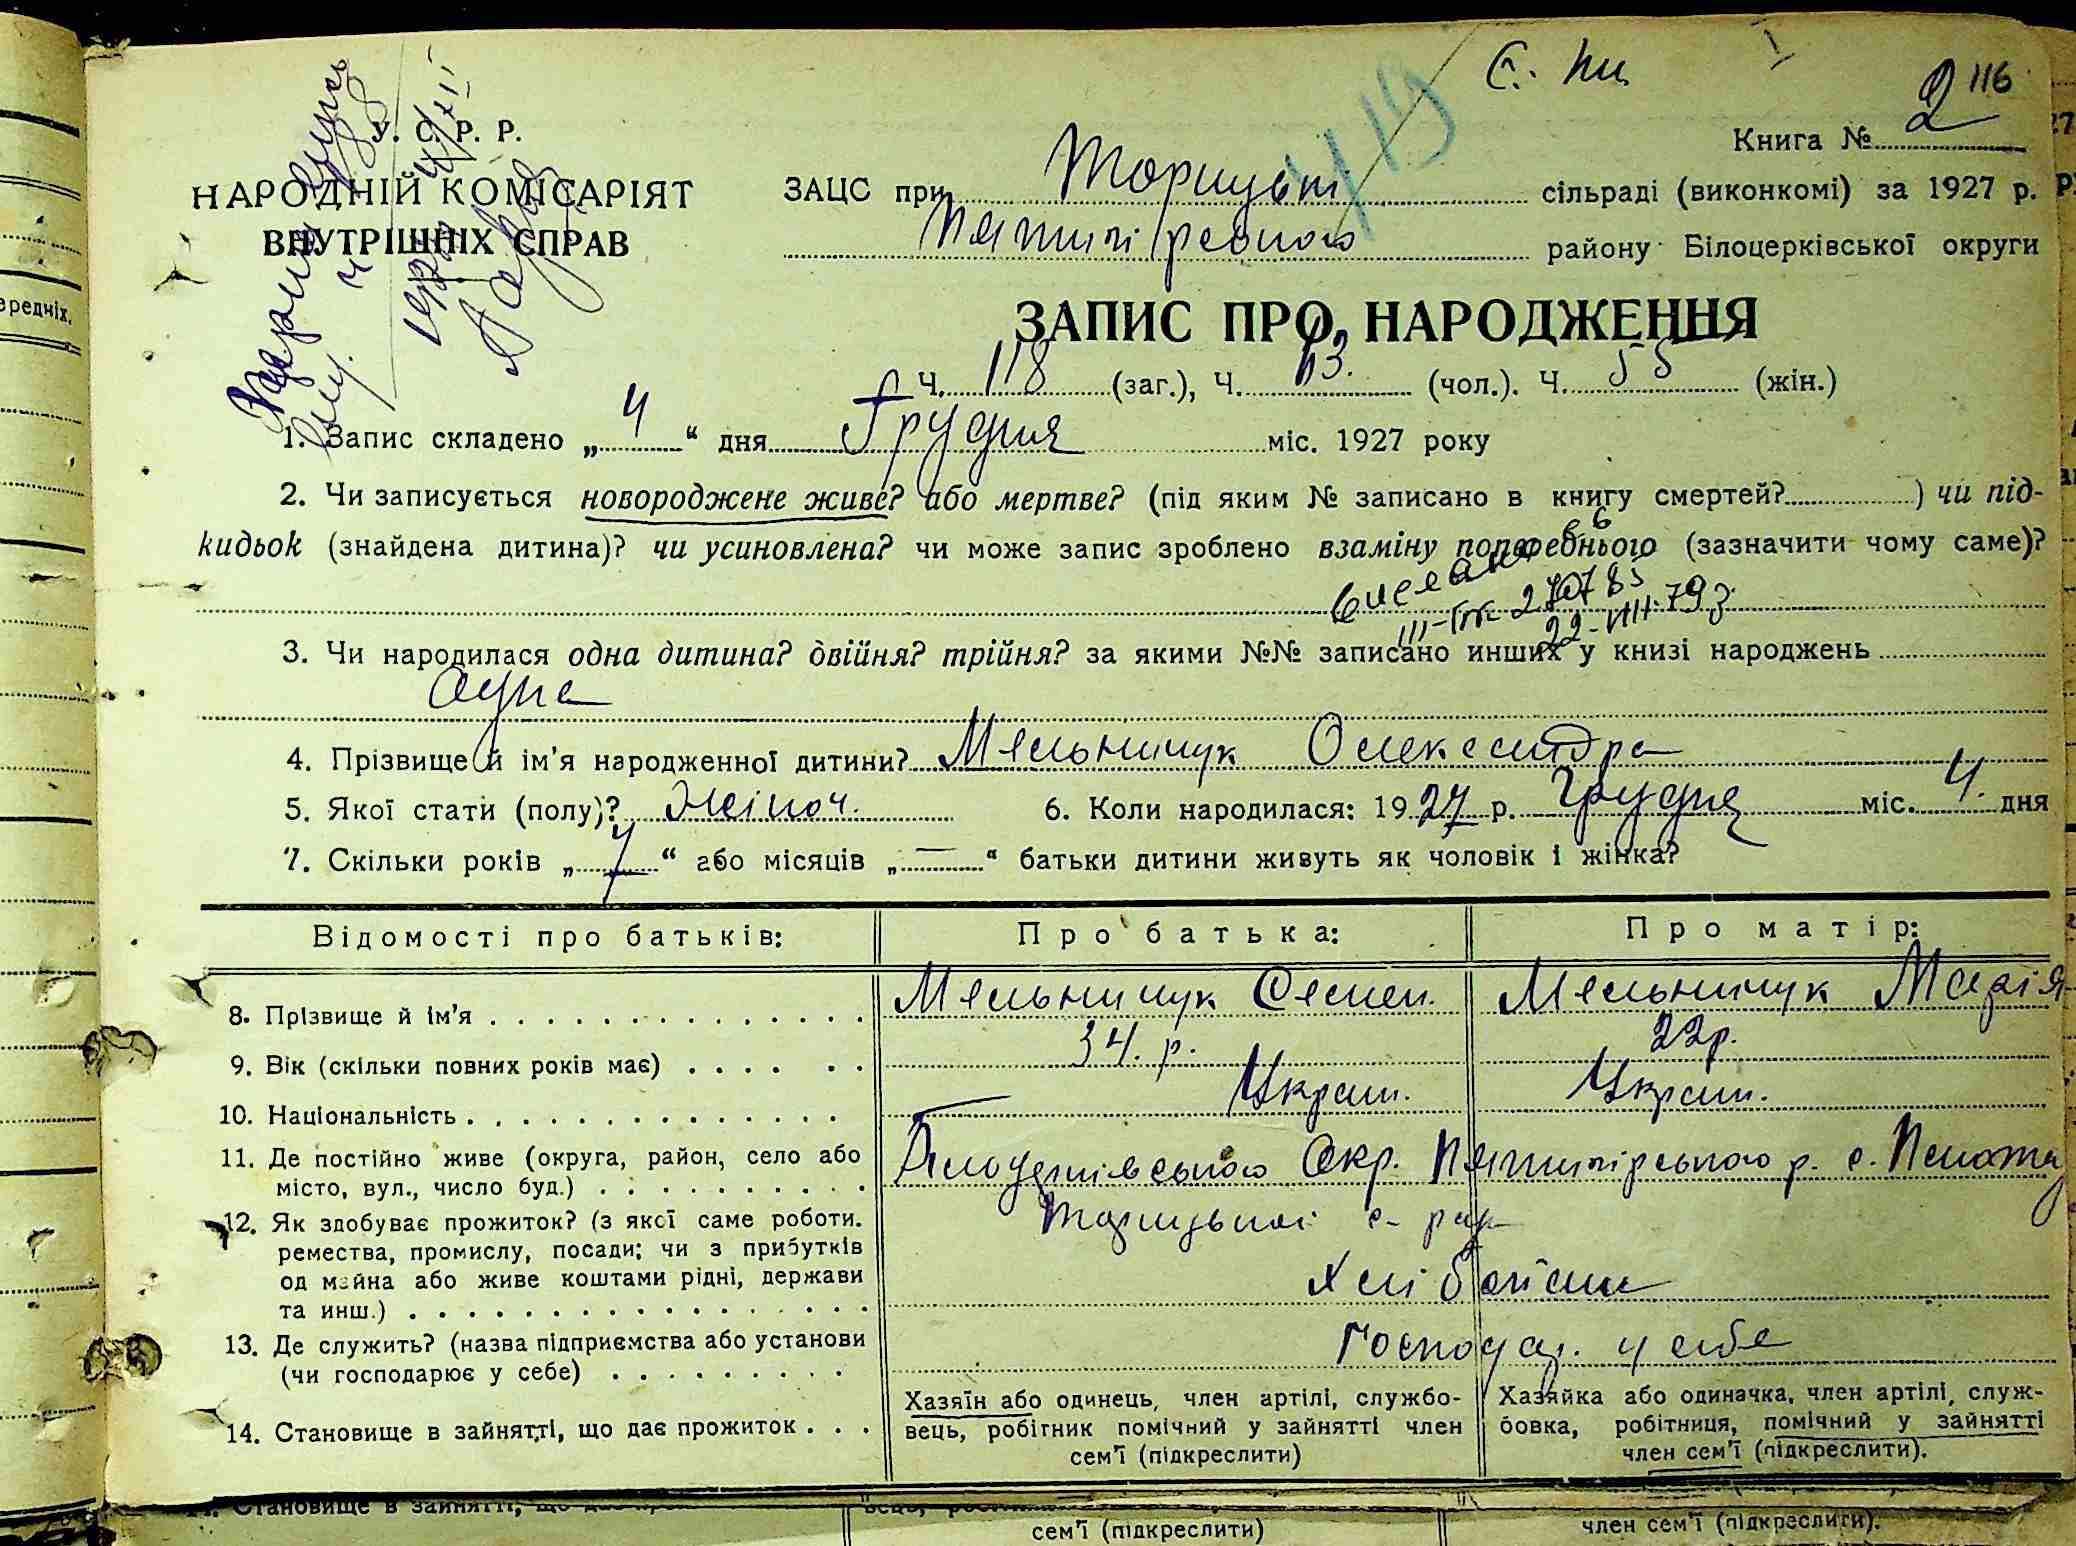 С. Пи
2 116
419
У. С. Р. Р.
НАРОДНІЙ КОМІСАРІЯТ
ВНУТРІШНІХ СПРАВ
Книга № 2
ЗАЦС при Торицькі сільраді (виконкомі) за 1927 р.
Пятигірського району Білоцерківської округи
ЗАПИС ПРО НАРОДЖЕННЯ
Ч. 118 (заг.), Ч. 63. (чол.). Ч. 55 (жін.)
1. Запис складено „ 4 “ дня Грудня міс. 1927 року
2. Чи записується новороджене живе? або мертве? (під яким № записано в книгу смертей? ) чи під-
кидьок (знайдена дитина)? чи усиновлена? чи може запис зроблено взаміну попереднього (зазначити чому саме)?
22-VIII-79
3. Чи народилася одна дитина? двійня? трійня? за якими №№ записано инших у книзі народжень
Одна
4. Прізвище й ім'я народженної дитини? Мельничук Олександра
5. Якої стати (полу)? Жіноч. 6. Коли народилася: 1927 р. Грудня міс. 4. дня
7. Скільки років „ 7 “ або місяців „ — “ батьки дитини живуть як чоловік і жінка?
Відомості про батьків: Про батька: Про матір:
8. Прізвище й ім'я Мельничук Семен. Мельничук Марія
9. Вік (скільки повних років має) 34. р. 22р.
10. Національність Украин. Украин.
11. Де постійно живе (округа, район, село або Білоцерківського Окр. Пятигірського р. с.
місто, вул., число буд.) Торицької с-рад
12. Як здобуває прожиток? (з якої саме роботи.
ремества, промислу, посади; чи з прибутків
од майна або живе коштами рідні, держави
та инш.) Хліборобст
13. Де служить? (назва підприємства або установи
(чи господарює у себе) Господар. у себе
14. Становище в зайнятті, що дає прожиток . . .
Хазяїн або одинець, член артілі, службо-
вець, робітник помічний у зайнятті член
сем'ї (підкреслити)
Хазяйка або одиначка, член артілі, служ-
бовка, робітниця, помічний у зайнятті
член сем'ї (підкреслити).
сем'ї (підкреслити)
член сем'ї (підкреслити).
ередніх.